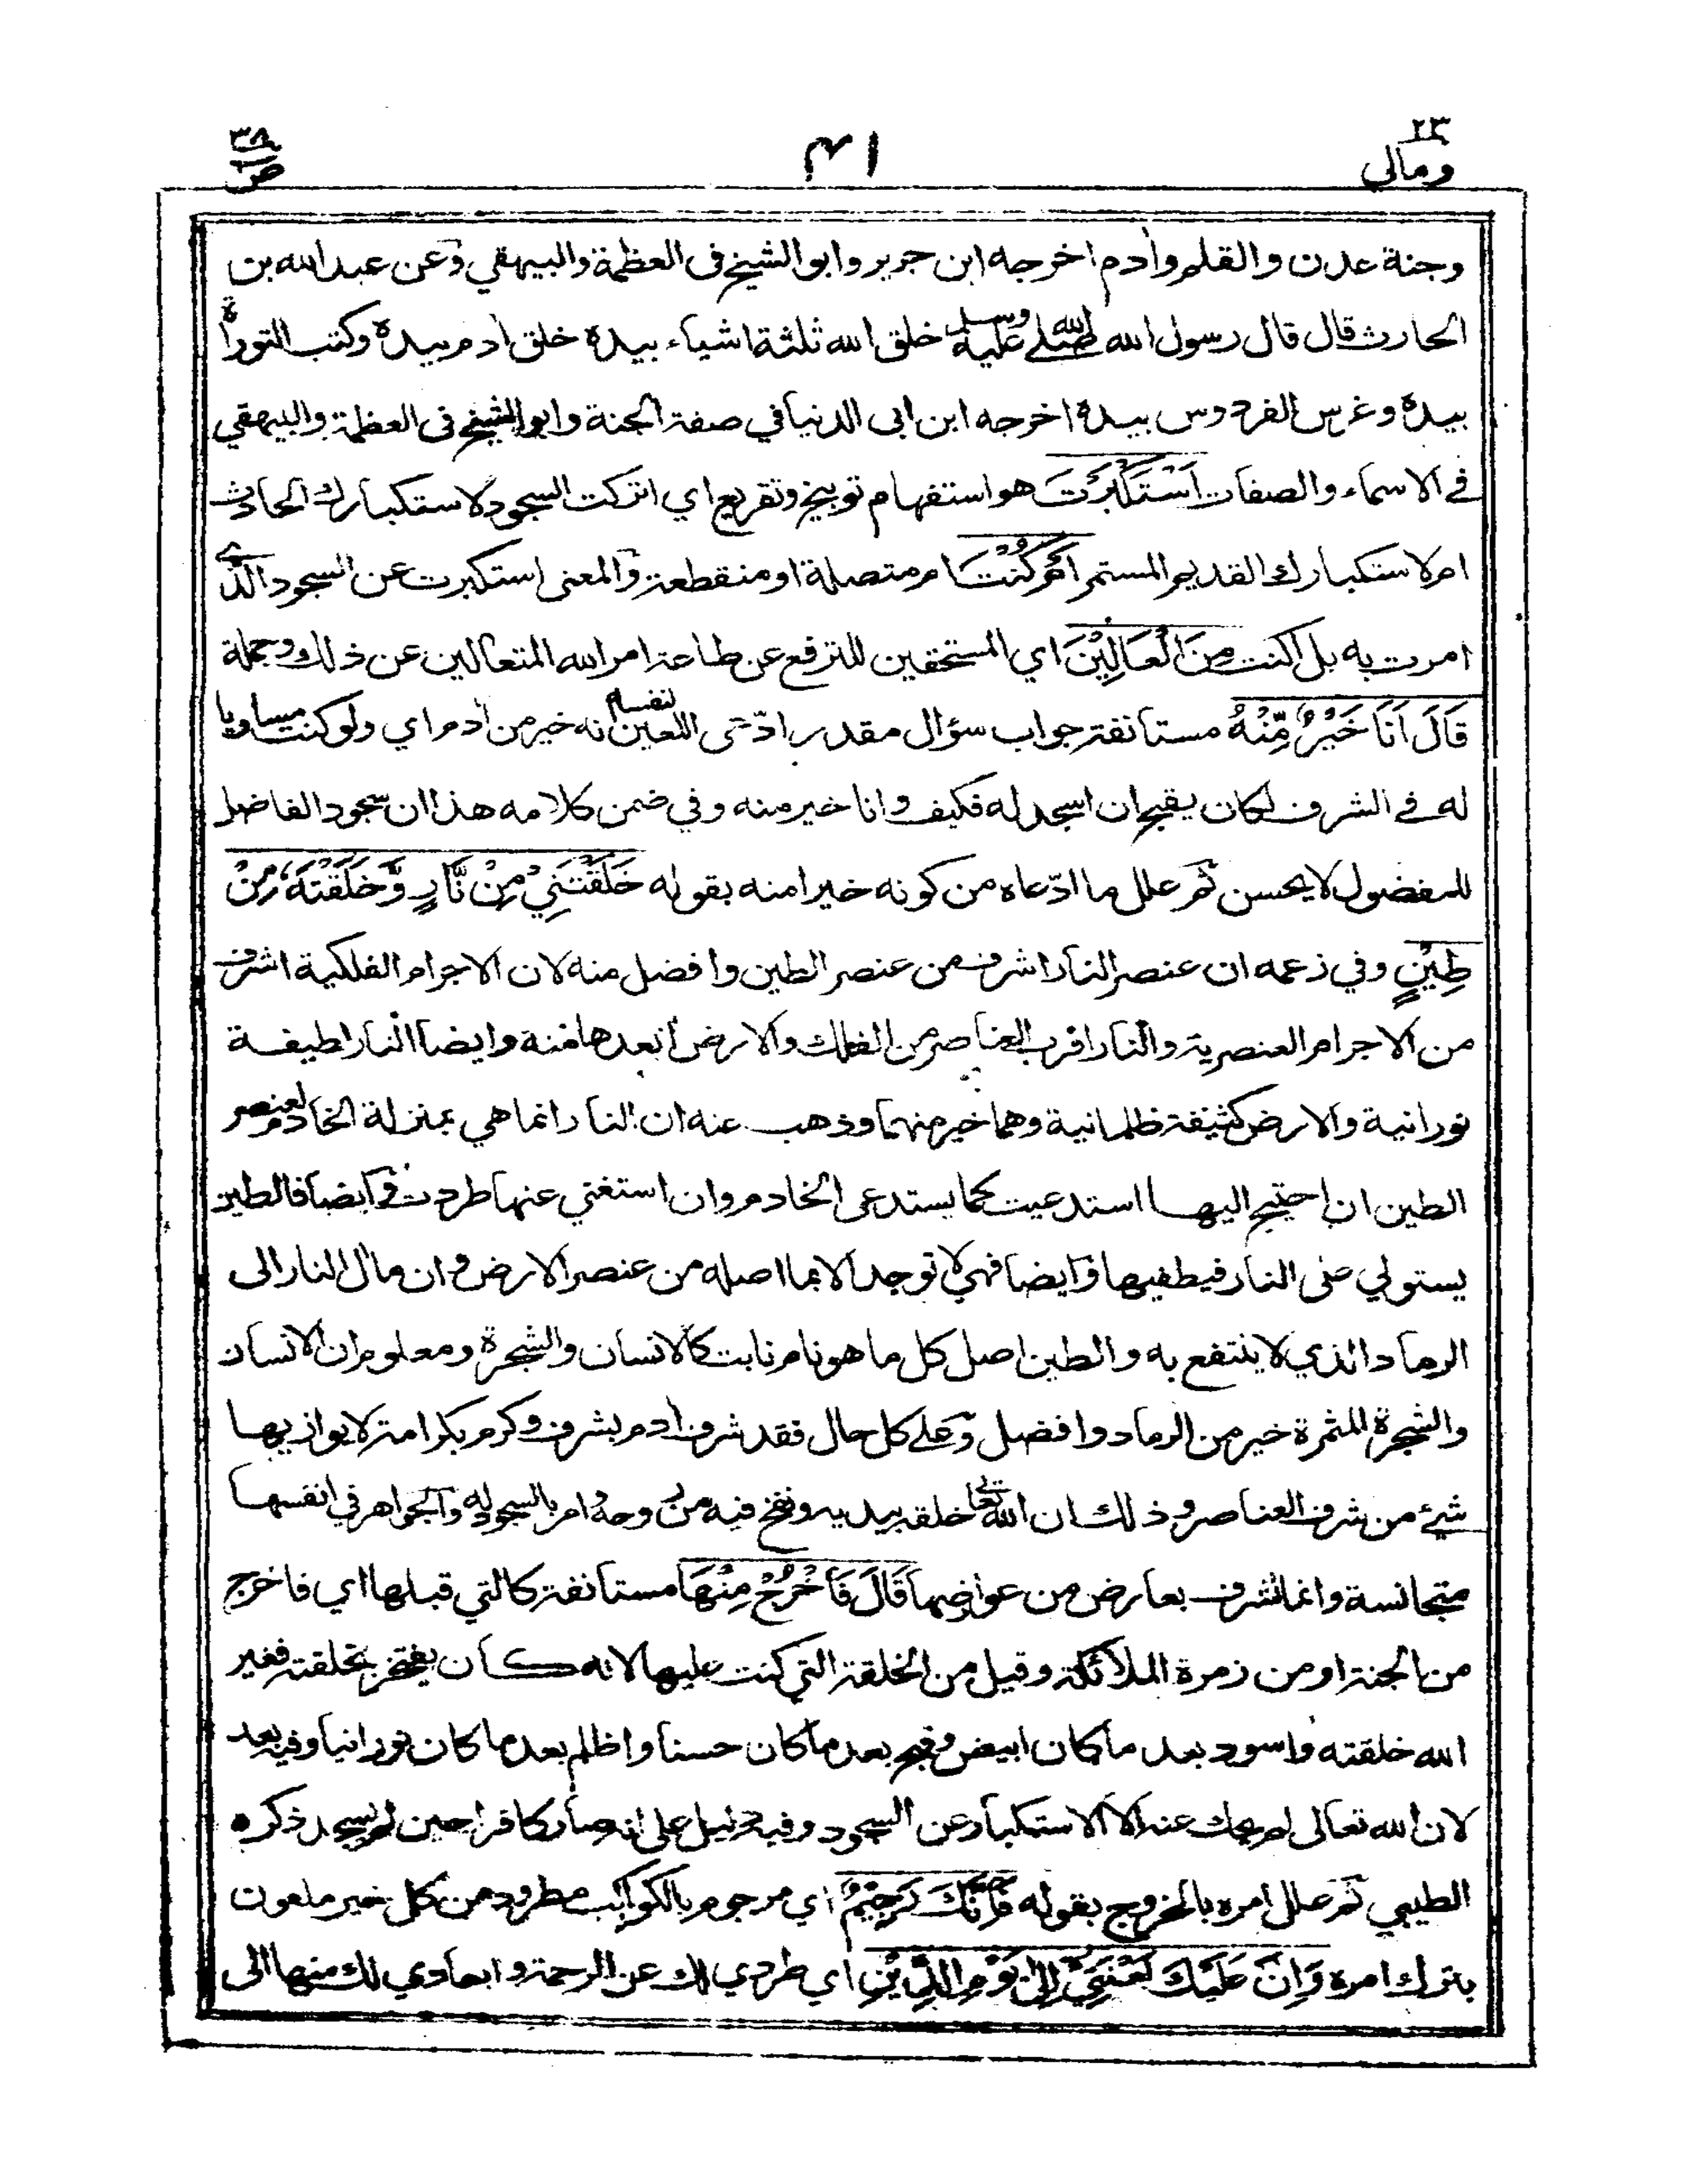 ٢٣
ومالي
٤١
٣٨
ص
وجنة عدن والقلم وأدم اخرجه ابن جرير وابو الشيخ فى العظمة والبيهقي وَعن عبد الله بن
الحارث قال قال رسول الله صلى الله عليه وسلم خلق الله ثلثة اشياء بيده خلق أدم بيده وكتب التوراة
بيده وغرس الفردوس بيده اخرجه ابن ابى الدنيا في صفة الجنة وابو الشيخ فى العظمة والبيهقي
في الاسماء والصفات اَسْتَكْبَرْتَ هو استفهام توبيخ وتقريع اي اتركت السجود لاستكبارك الحادث
ام لاستكبارك القديم المستمر اَمْ كُنْتَ ام متصلة او منقطعة والمعنى استكبرت عن السجود الذي
امرت به بل اكنت مِنَ الْعَالِيْنَ اي المستحقين للترفع عن طاعة امر الله المتعالين عن ذلك وجملة
قَالَ اَنَا خَيْرٌ مِّنْهُ مستأنفة جواب سؤال مقدر ادّعى اللعين لنفسه انه خير من أدم اي ولو كنت مساويا
له في الشرف لكان يقبح ان اسجد له فكيف وانا خير منه وفي ضمن كلامه هذا ان سجود الفاضل
للمفضول لا يحسن ثم علل ما ادّعاه من كونه خيرا منه بقوله خَلَقْتَنِيْ مِنْ نَّارٍ وَّخَلَقْتَهٗ مِنْ
طِيْنٍ وفي زعمه ان عنصر النار اشرف من عنصر الطين وافضل منه لان الاجرام الفلكية اشرف
من الاجرام العنصرية والنار اقرب العناصر من الفلك والارض أبعدها منه وايضا النار لطيفة
نورانية والارض كثيفة ظلمانية وهما خير منهما وذهب عنه ان النار انما هي بمنزلة الخادم لعنصر
الطين ان احتيج اليها استدعيت كما يستدعى الخادم وان استغني عنها طردت وايضا فالطين
يستولي على النار فيطفيها وايضا فهي لا توجد الا بما اصله من عنصر الارض وان مآل النار الى
الرماد الذي لا ينتفع به والطين اصل كل ما هو نام نابت كالانسان والشجرة ومعلوم ان الانسان
والشجرة المثمرة خير من الرماد وافضل وَعلى كل حال فقد شرف أدم بشرف وكرم بكرامة لا يوازيها
شيئ من شرف العناصر وذلك ان الله تعالى خلقه بيديه ونفخ فيه من روحه وامر بالسجود له والجواهر في انفسها
متجانسة وانما تشرف بعارض من عوارضها قَالَ فَاخْرُجْ مِنْهَا مستأنفة كالتي قبلها اي فاخرج
من الجنة او من زمرة الملائكة وقيل من الخلقة التي كنت عليها لانه كان يفتخر بخلقته فغير
الله خلقته واسود بعد ما كان ابيض وقبح بعد ما كان حسنا واظلم بعد ما كان نورانيا وفيه بعد
لان الله تعالى لم يحك عنه الا الاستكبار عن السجود وفيه دليل على انه صار كافرا حين لم يسجد ذكره
الطيبي ثم علل امره بالخروج بقوله فَاِنَّكَ رَجِيْمٌ اي مرجوم بالكواكب مطرود من كل خير ملعون
بترك امره وَاِنَّ عَلَيْكَ لَعْنَتِيْ اِلٰى يَوْمِ الدِّيْنِ اي طردي لك عن الرحمة وابعادي لك منها الى